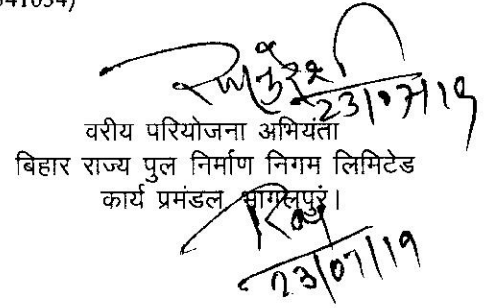 41034)
23/07/19
वरीय परियोजना अभियंता
बिहार राज्य पुल निर्माण निगम लिमिटेड
कार्य प्रमंडल, भागलपुर।
23/07/19